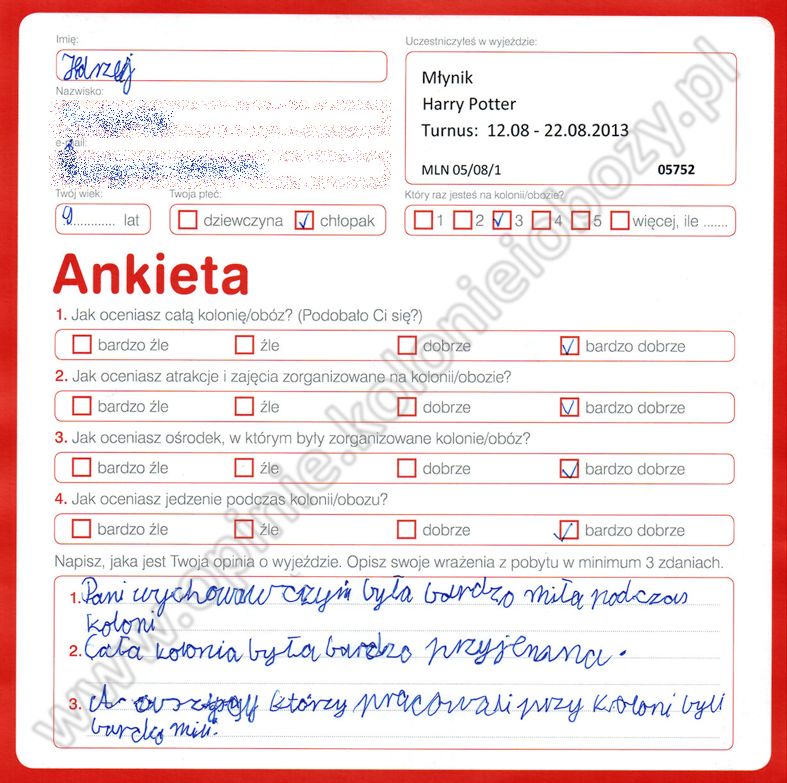 Imię:
Uczestniczyłeś w wyjeździe:
Młynik
Nazwisko:
Harry Potter
Turnus: 12.08 - 22.08.2013
e-mail:
MLN 05/08/1 05752
Twój wiek: Twoja płeć: Który raz jesteś na kolonii/obozie?
9 lat dziewczyna chłopak 1 2 3 4 5 więcej, ile .......
Ankieta
1. Jak oceniasz całą kolonię/obóz? (Podobało Ci się?)
bardzo źle źle dobrze bardzo dobrze
2. Jak oceniasz atrakcje i zajęcia zorganizowane na kolonii/obozie?
bardzo źle źle dobrze bardzo dobrze
3. Jak oceniasz ośrodek, w którym były zorganizowane kolonie/obóz?
bardzo źle źle dobrze bardzo dobrze
4. Jak oceniasz jedzenie podczas kolonii/obozu?
bardzo źle źle dobrze bardzo dobrze
Napisz, jaka jest Twoja opinia o wyjeździe. Opisz swoje wrażenia z pobytu w minimum 3 zdaniach.
1. Pani była bardzo miła podczas
koloni
2. Cała kolonia była bardzo
3. którzy pracowali przy koloni byli
mili.
www.opinie.kolonieiobozy.pl